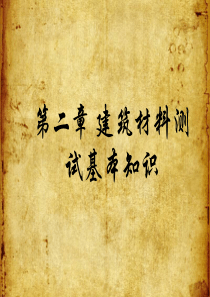 第二章 建筑材料测
试基本知识